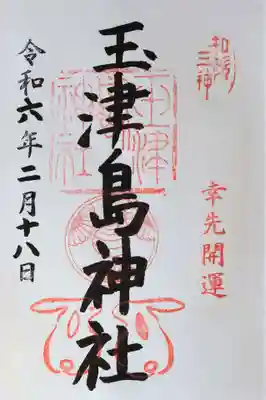 和歌
三神
幸先開運
玉津島神社
令和六年二月十八日